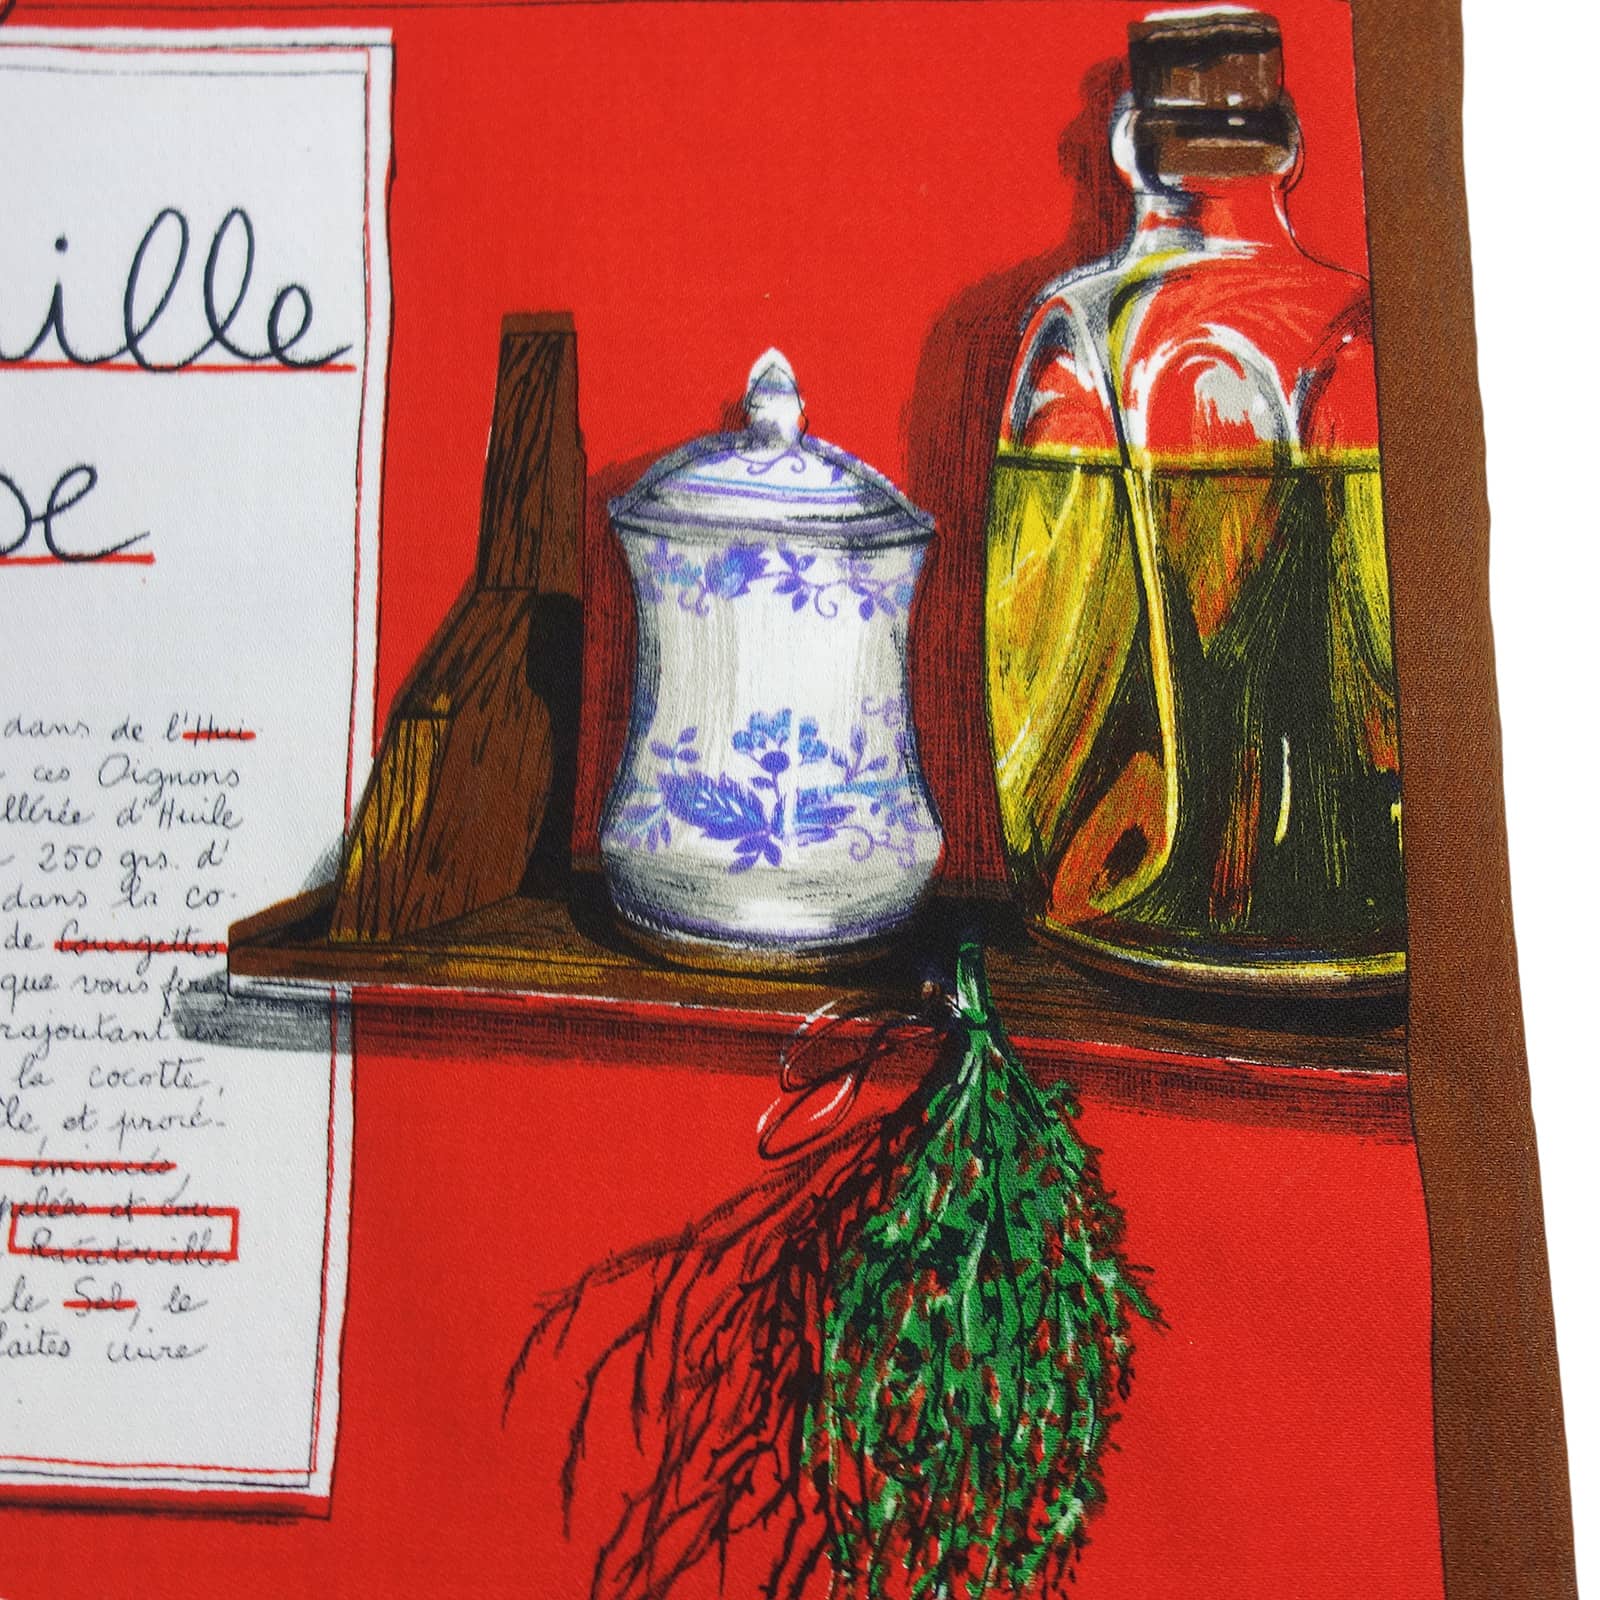 ille
dans de l'Hui
ces Oignons
llérée d'Huile
250 grs. d'
dans la co-
de Courgettes
que vous ferez
rajoutant un
la cocotte,
et procé-
émincés,
pelées et cou
Ratatouille
le Sel, le
faites cuire